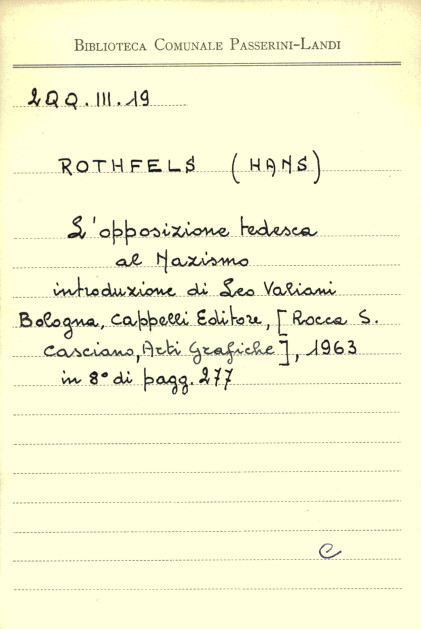 Biblioteca Comunale Passerini-Landi
2QQ.III.19
ROTHFELS (HANS)
L'opposizione tedesca
al Nazismo
introduzione di Leo Valiani
Bologna, Cappelli Editore, [Rocca S.
Casciano, Arti Grafiche], 1963
in 8° di pagg. 277
C